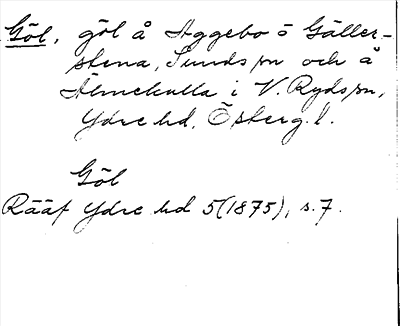 Göl, göl å Aggebo ö Gäller-
stena, Sunds sn och å
Älmekulla i V. Ryds sn,
Ydre hd, Österg.l.
Göl
Rääf Ydre hd 5(1875), s.7.